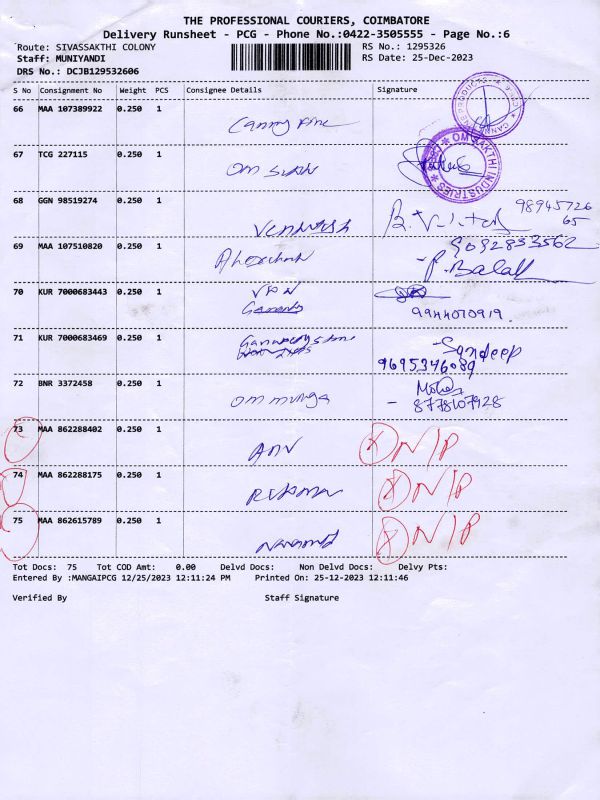 THE PROFESSIONAL COURIERS, COIMBATORE
Delivery Runsheet - PCG - Phone No.:0422-3505555 - Page No.:6
Route: SIVASSAKTHI COLONY RS No.: 1295326
Staff: MUNIYANDI RS Date: 25-Dec-2023
DRS No.: DCJB129532606
S No Consignment No Weight PCS Consignee Details Signature
66 MAA 107389922 0.250 1
67 TCG 227115 0.250 1 OM
OM SAKTHI INDUSTRIES
68 GGN 98519274 0.250 1 98945726
65
69 MAA 107510820 0.250 1 9092833562
P. Balaji
70 KUR 7000683443 0.250 1
9944070919.
71 KUR 7000683469 0.250 1 Sandeep
9695346089
72 BNR 3372458 0.250 1 om munga
- 8778107928
73 MAA 862288402 0.250 1 N/P
74 MAA 862288175 0.250 1 N/P
75 MAA 862615789 0.250 1 N/P
Tot Docs: 75 Tot COD Amt: 0.00 Delvd Docs: Non Delvd Docs: Delvy Pts:
Entered By :MANGAIPCG 12/25/2023 12:11:24 PM Printed On: 25-12-2023 12:11:46
Verified By Staff Signature